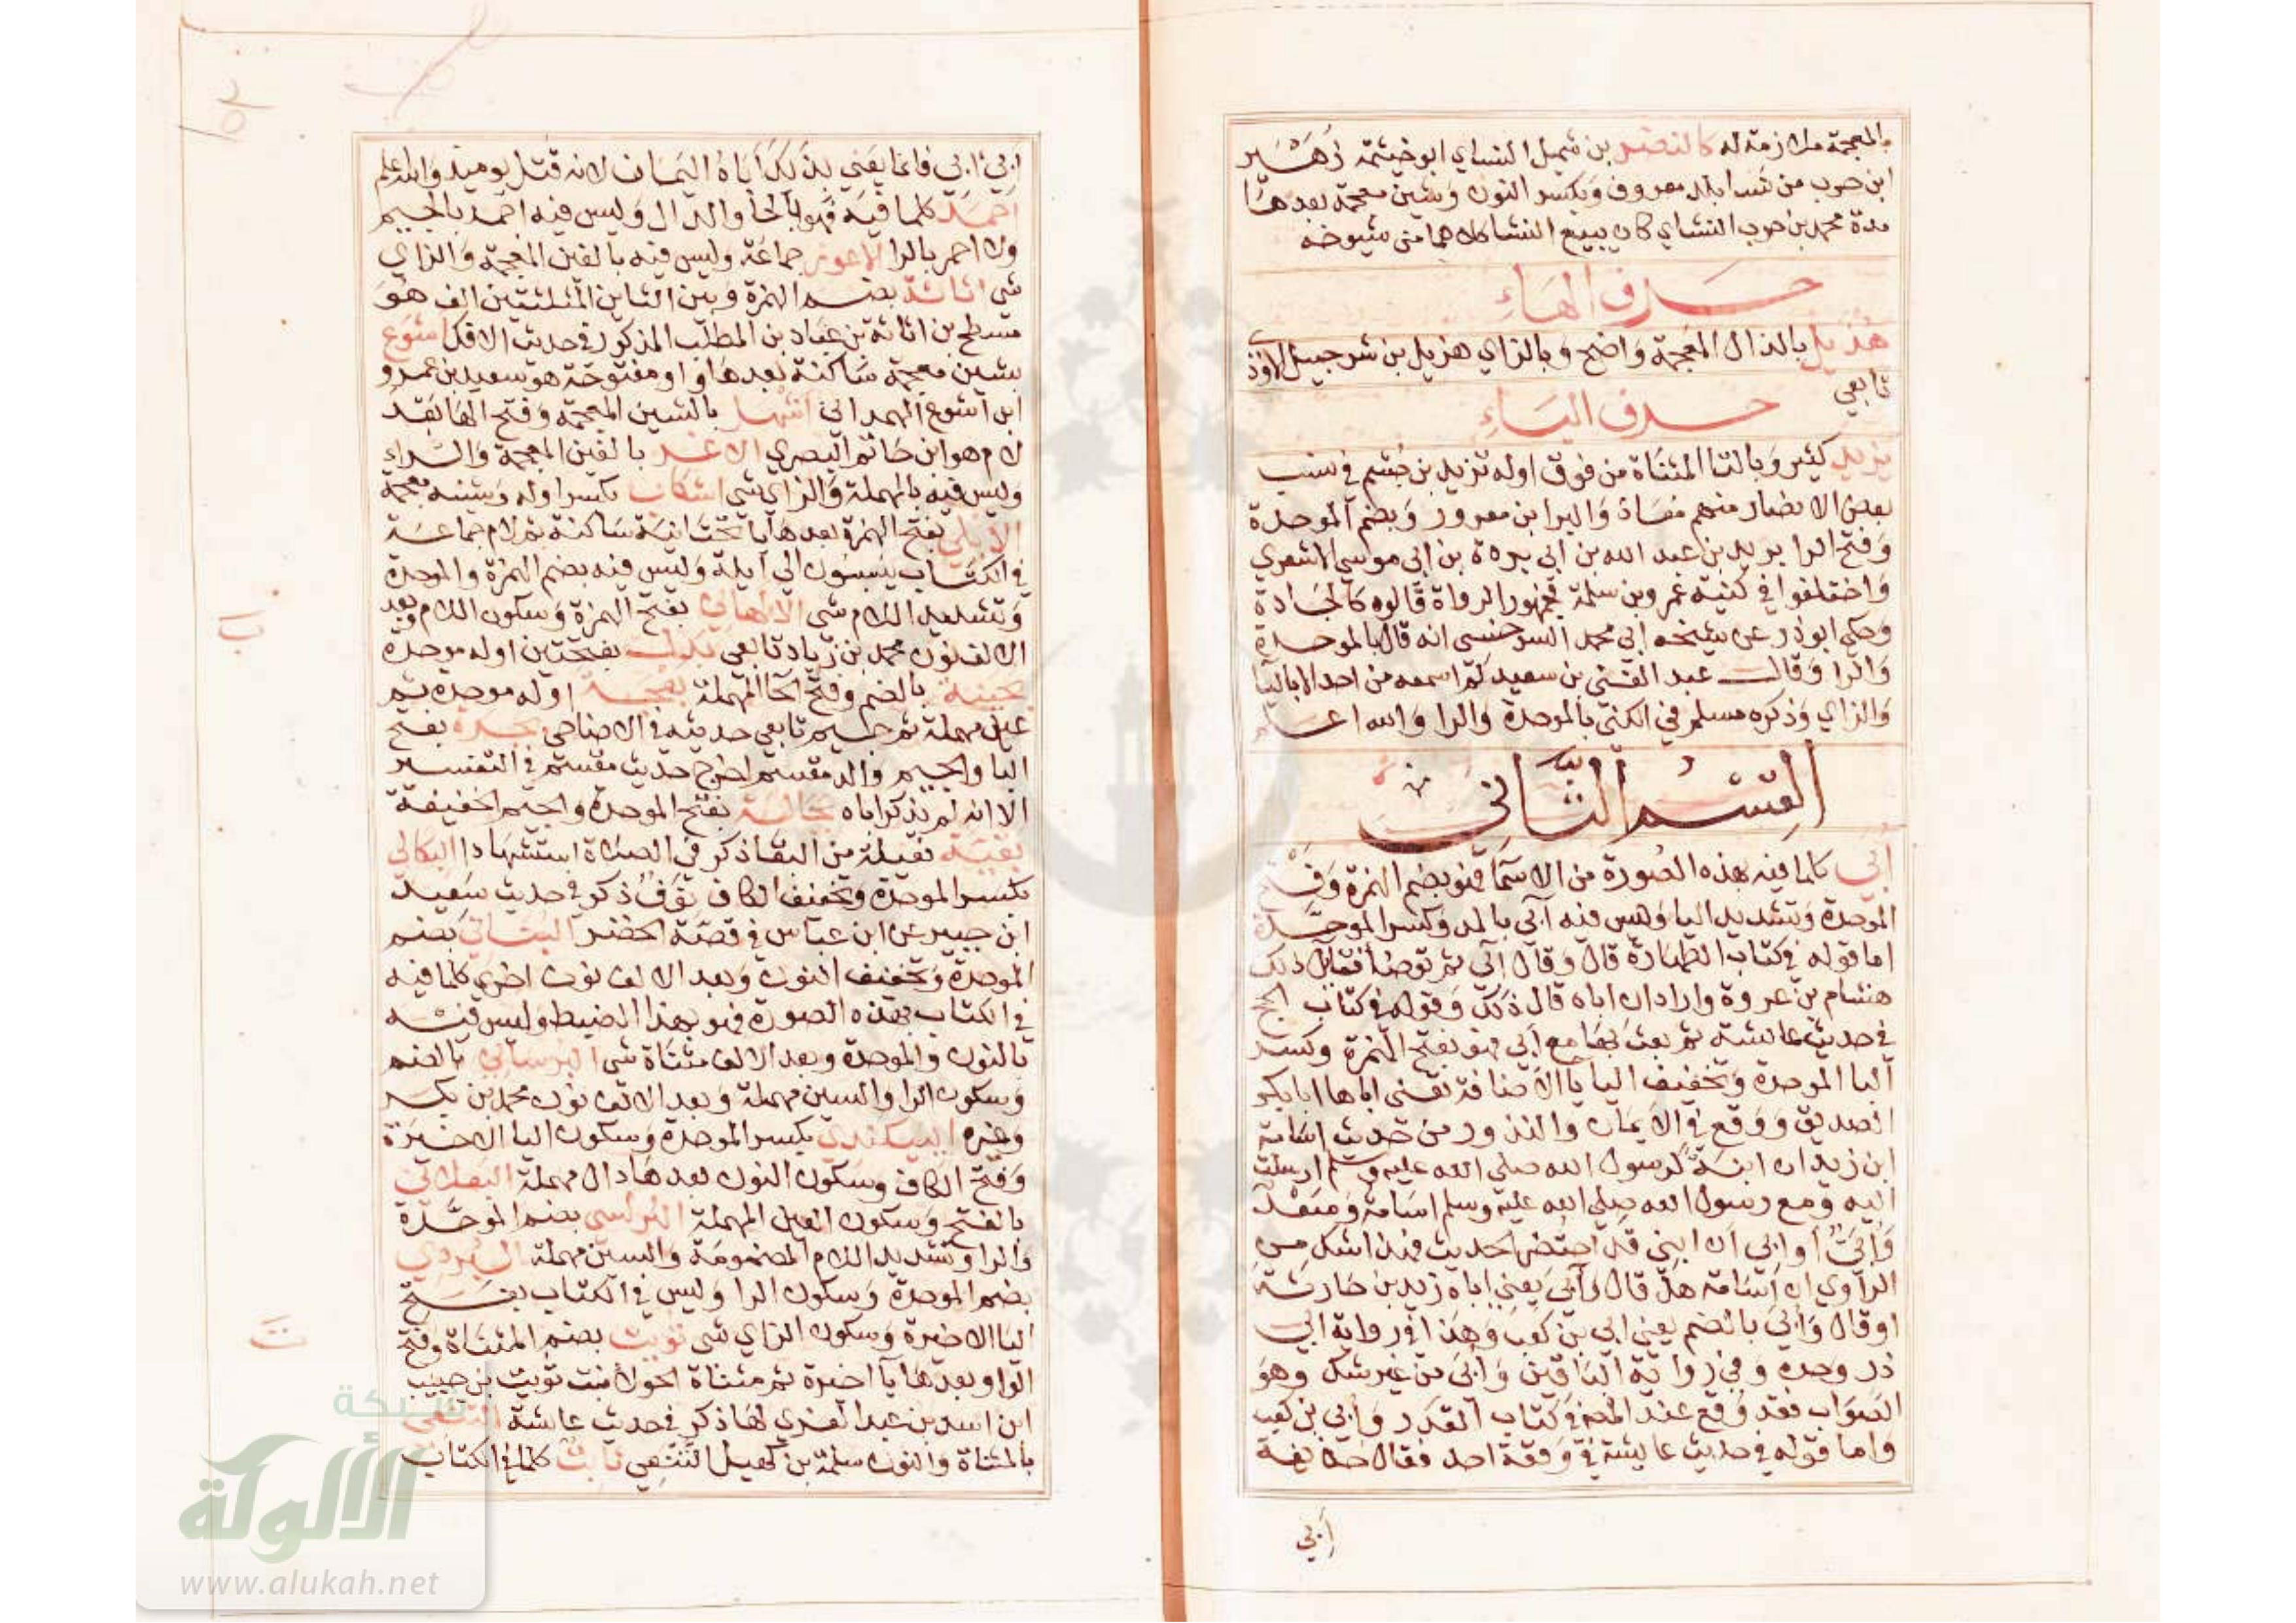 بالمعجمة ملازمة له كالنضر بن شميل النساي ابو خيثمة زهير
ابن حرب من نسا بلد معروف وبكسر النون وشين معجمة بعدها
مدة محمد بن حرب النشاي كان يبيع النشا كلاهما من شيوخه
حرف الهاء
هذيل بالذال المعجمة واضح وبالزاي هزيل بن شرحبيل الاودي
تابعي
حرف الياء
يزيد كثير وبالتا المثناة من فوق اوله تزيد بن جشم في نسب
بعض الانصار منهم معاذ والبرا بن معرور وبضم الموحدة
وفتح الرا بريد بن عبد الله بن ابي بردة بن ابي موسي الاشعري
واختلفوا في كنية عمرو بن سلمة فجمهور الرواة قالوه كالجادة
وحكي ابو ذر عن شيخه ابي محمد السرخسي انه قال بالموحدة
والرا وقال عبد الغني بن سعيد لم اسمعه من احد الا باليا
والزاي وذكره مسلم في الكني بالموحدة والرا والله اعلم
القسم الثاني
ابي كلما فيه هذه الصورة من الاسما فهو بضم الهمزة وفتح
الموحدة وتشديد اليا وليس فيه آبي بالمد وكسر الموحدة
اما قوله في كتاب الطهارة قال وقال ابي ثم توضا فقايل ذلك
هشام بن عروة واراد ان اباه قال ذلك وقوله في كتاب الحج
في حديث عايشة ثم بعث بها مع ابي فهو بفتح الهمزة وكسر
البا الموحدة وتخفيف اليا بالاضافة تعني اباها ابا بكر
الصديق ووقع في الايمان والنذور من حديث اسامة
ابن زيد ان ابنة لرسول الله صلي الله عليه وسلم ارسلت
اليه ومع رسول الله صلي الله عليه وسلم اسامة وسعد
وأبيّ او ابي ان ابني قد احتضر الحديث فهذا شك من
الراوي ان اسامة هل قال وأبي يعني اباه زيد بن حارثة
او قال وأبي بالضم يعني ابي بن كعب وهذا في رواية ابي
ذر وحده وفي رواية الباقين وأبي من غير شك وهو
الصواب فقد وقع عند المص في كتاب القدر وأبي بن كعب
واما قوله في حديث عايشة في وقعة احد فقال حذيفة
أبي
أبي ابي فانما يعني بذلك اباه اليمان لانه قتل يوميذ والله اعلم
احمد كلما فيه فهو بالحا والدال وليس فيه اجمد بالجيم
ولا احمر بالرا الاعور جماعة وليس فيه بالغين المعجمة والزاي
شي اثاثة بضم الهمزة وبين الثاين المثلثتين الف هو
مسطح بن اثاثة بن عباد بن المطلب المذكور في حديث الافك اشوع
بشين معجمة ساكنة بعدها واو مفتوحة هو سعيد بن عمرو
ابن اشوع الهمداني اشهل بالشين المعجمة وفتح الها بعد
لام هو ابن حاتم البصري الاغر بالغين المعجمة والراء
وليس فيه بالمهملة والزاي شي اشكاب بكسر اوله وشينه معجمة
الايلي بفتح الهمزة بعدها يا تحتانية ساكنة ثم لام جماعة
في الكتاب ينسبون الي ايلة وليس فيه بضم الهمزة والموحدة
وتشديد اللام شي الالهاني بفتح الهمزة وسكون اللام وبعد
الالف نون محمد بن زياد تابعي بدل بفتحتين اوله موحدة
بحينة بالضم وفتح الحا المهملة بعجة اوله موحدة ثم
عين مهملة ثم جيم تابعي حديثه في الاضاحي بجرة بفتح
البا والجيم والد مقسم اخرج حديث مقسم في التفسير
الا انه لم يذكر اباه بجالة بفتح الموحدة والجيم الخفيفة
بقية فعيلة من البقا ذكر في الصلاة استشهادا البكالي
بكسر الموحدة وتخفيف الكاف نوف ذكر في حديث سعيد
ابن جبير عن ابن عباس في قصة الخضر البناني بضم
الموحدة وتخفيف النون وبعد الالف نون اخري كلما فيه
في الكتاب بهذه الصورة فهو بهذا الضبط وليس فيه
بالنون والموحدة وبعد الالف مثناة شي البرساني بالضم
وسكون الرا والسين مهملة وبعد الالف نون محمد بن بكر
وغيره البيكندي بكسر الموحدة وسكون اليا الاخيرة
وفتح الكاف وسكون النون بعدها دال مهملة البعلاني
بالفتح وسكون العين المهملة البرلسي بضم الموحدة
والرا وتشديد اللام المضمومة والسين مهملة البردي
بضم الموحدة وسكون الرا وليس في الكتاب بفتح
اليا الاخيرة وسكون الزاي شي تويت بضم المثناة وفتح
الواو بعدها يا اخيرة ثم مثناة الحولا بنت تويت بن حبيب
ابن اسد بن عبد العزي لها ذكر في حديث عايشة التنعي
بالمثناة والنون سلمة بن كهيل التنعي ثابت كلما في الكتاب
ب
ت
شبكة
الألوكة
www.alukah.net